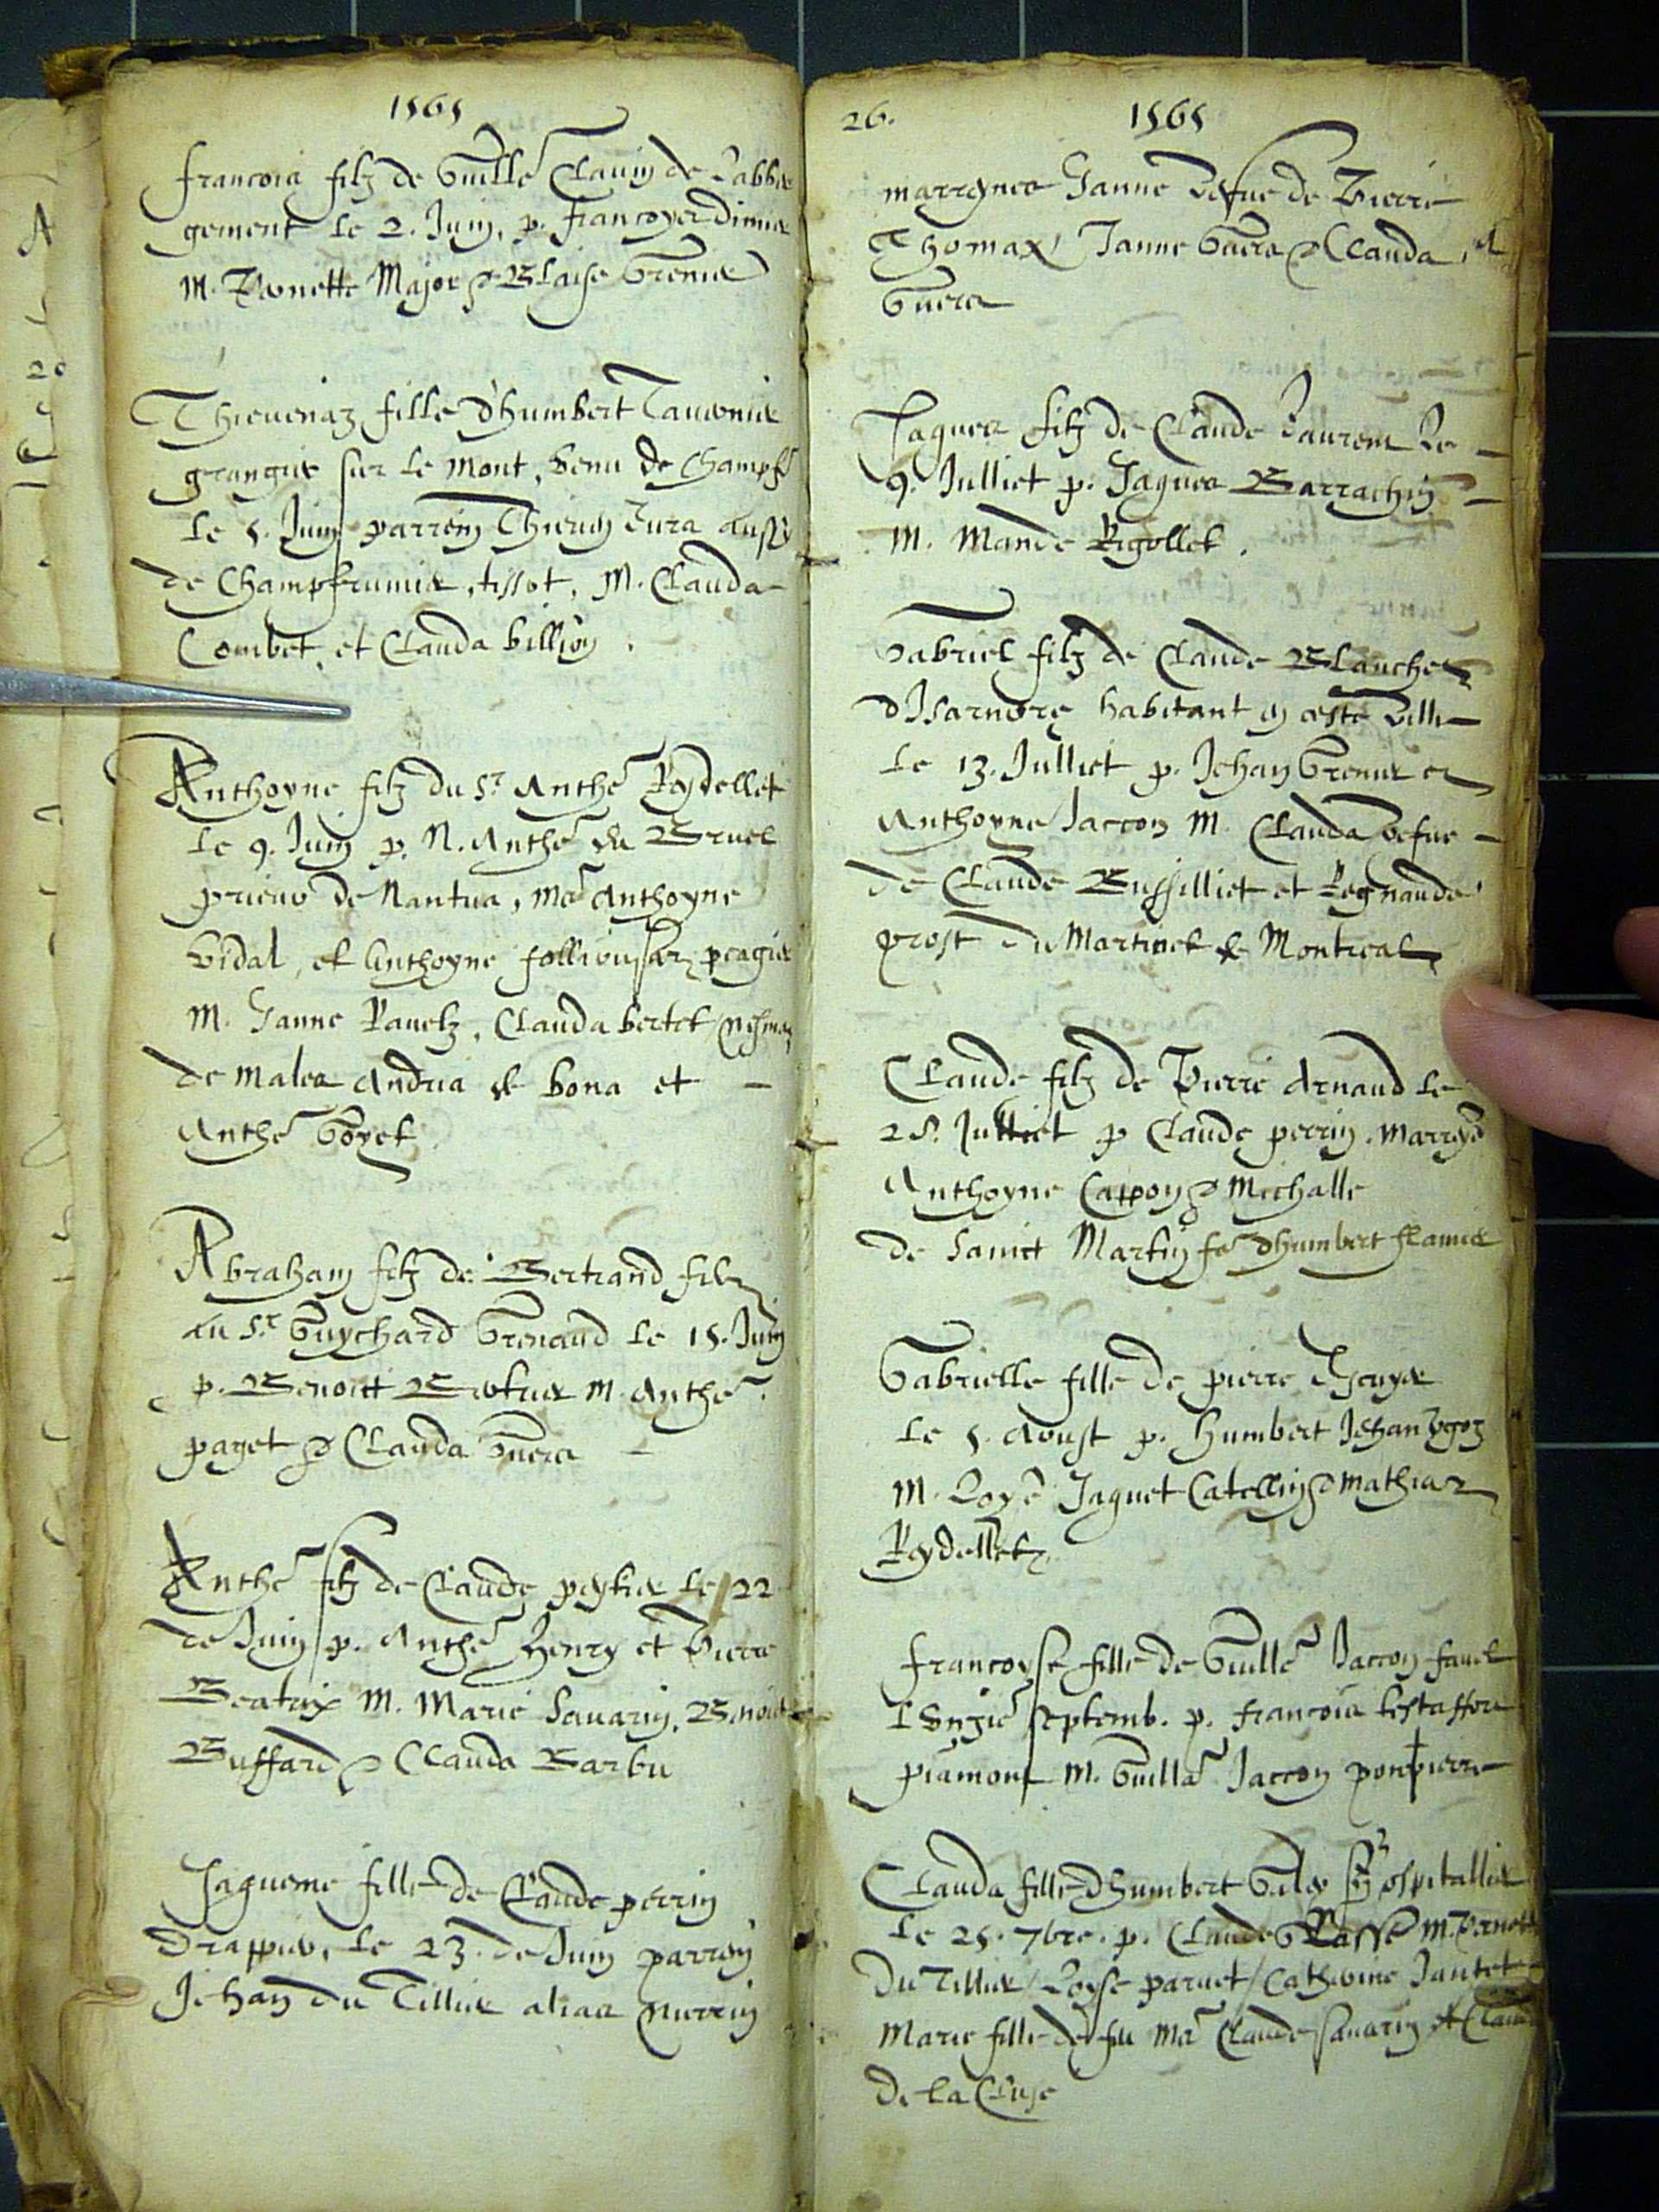 1565
francois filz de Guille Clauin de l'abbe
gement le 2. Juin, p. francoys
M. Pernette Major & Blaise Grenier
Thieuenaz fille d'humbert Tauernier
grangier sur le Mont, venu de Champf
le 5. Juin parrein Thieuen Jura aussy
de Champfrumier, tissot, M. Clauda
Combet, et Clauda billion.
Anthoyne filz du Sr Anthe Reydellet
le 9. Juin p. N. Anthe du Bruel
prieur de Nantua, Me Anthoyne
Vidal, et Anthoyne peagier
M. Janne Rauetz, Clauda bertet
de Males Andria de bona et
Anthe Goyet
Abraham filz de Bertrand filz
du Sr Guychard Grenaud le 15. Juin
p. Benoict M. Anthe
paget & Clauda Guera
Anthe filz de Claude le 22
de Juin p. Anthe Henry et Pierre
Beatrix M. Marie Sauarin, Benoite
Buffard & Clauda Barbu
Jaqueme fille de Claude perrin
Drappier, le 23. de Juin parrein
Jehan du Tillier alias
26. 1565
marrynes Janne vefue de Pierre
Thomax, Janne Guera & Clauda
Guera
Jaques filz de Claude Laurent le
9. Julliet p. Jaques Barrachin
M. Mande Rigollet.
Gabriel filz de Claude Blanchet
d'Isarnore habitant en ceste ville
le 13. Julliet p. Jehan Grenier et
Anthoyne Jaccon M. Clauda vefue
de Claude Bussilliet et Regnaude
prost du Martinet de Montreal
Claude filz de Pierre Arnaud le
25. Julliet p Claude perrin. Marryne
Anthoyne Cappon & Michalle
de Sainct Martin fe d'humbert flamier
Gabrielle fille de pierre
le 5. Aoust p. humbert Jehan
M. Loyse Jaquet Catellin & Mathias
Reydellet
francoyse fille de Guille Jaccon fauel
septemb. p. francois
piamont M. Guilla Jaccon
Clauda fille d'humbert ospitallier
le 25. 7bre. p. Claude Passe M. Pernette
du Tillier / Loyse paruet / Catherine Jantet
Marie fille de feu Me Claude Sauarin et Clauda
De la Cluse